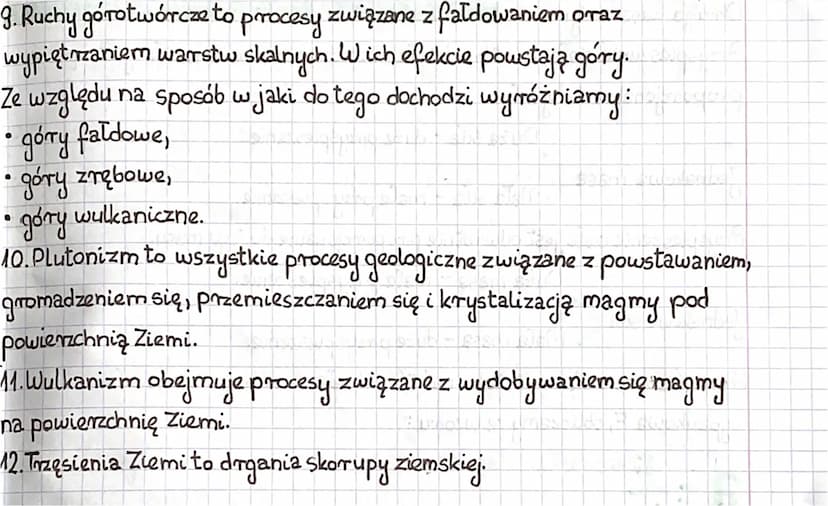 9. Ruchy górotwórcze to procesy związane z fałdowaniem oraz
wypiętrzaniem warstw skalnych. W ich efekcie powstają góry.
Ze względu na sposób w jaki do tego dochodzi wyróżniamy:
• góry fałdowe,
• góry zrębowe,
• góry wulkaniczne.
10. Plutonizm to wszystkie procesy geologiczne związane z powstawaniem,
gromadzeniem się, przemieszczaniem się i krystalizacją magmy pod
powierzchnią Ziemi.
11. Wulkanizm obejmuje procesy związane z wydobywaniem się magmy
na powierzchnię Ziemi.
12. Trzęsienia Ziemi to drgania skorupy ziemskiej.